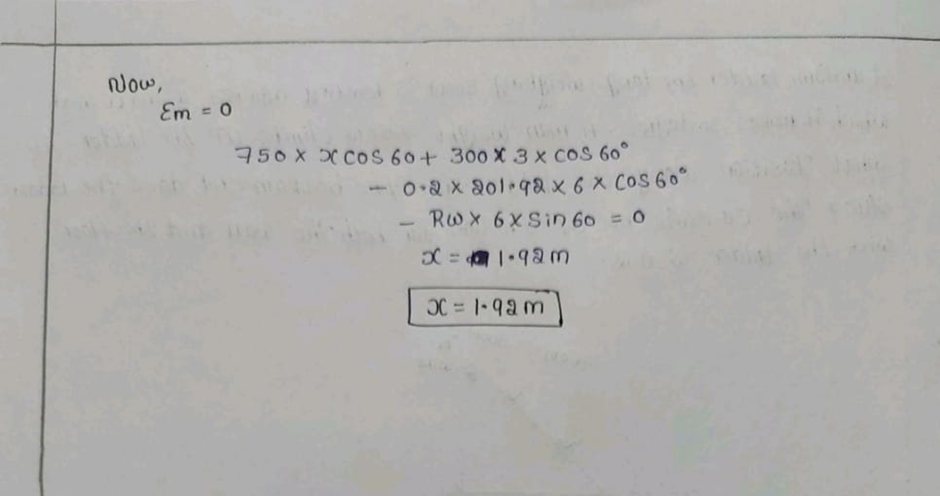 Now,
Σm = 0
750 × x cos 60 + 300 × 3 × cos 60°
- 0.2 × 201.92 × 6 × cos 60°
- Rw × 6 × sin 60 = 0
x = 1.92m
x = 1.92m